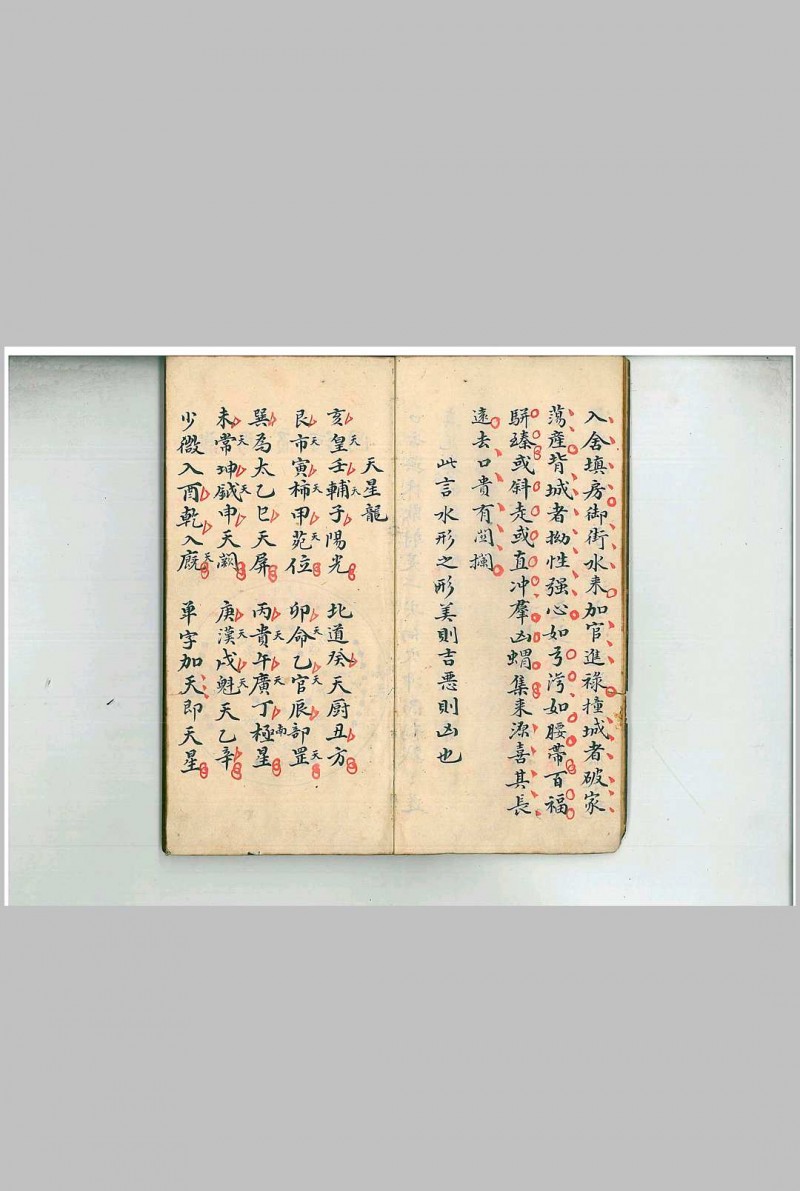 入舍填房御街水来加官進祿撞城者破家
蕩産背城者拗性强心如弓湾如腰帶百福
駢臻或斜走或直冲羣凶蝟集来源喜其長
遠去口貴有関攔
此言水形之形美則吉悪則凶也
天星龍
亥皇壬輔子陽光 北道癸天厨丑方
艮天市寅天柿甲天苑位 卯天命乙天官辰部天罡
巽為太乙巳天屏 丙天貴午天廣丁南極星
未天常坤天鉞申天闕 庚天漢戌天魁天乙辛
少微入酉乾入天厩 单字加天即天星